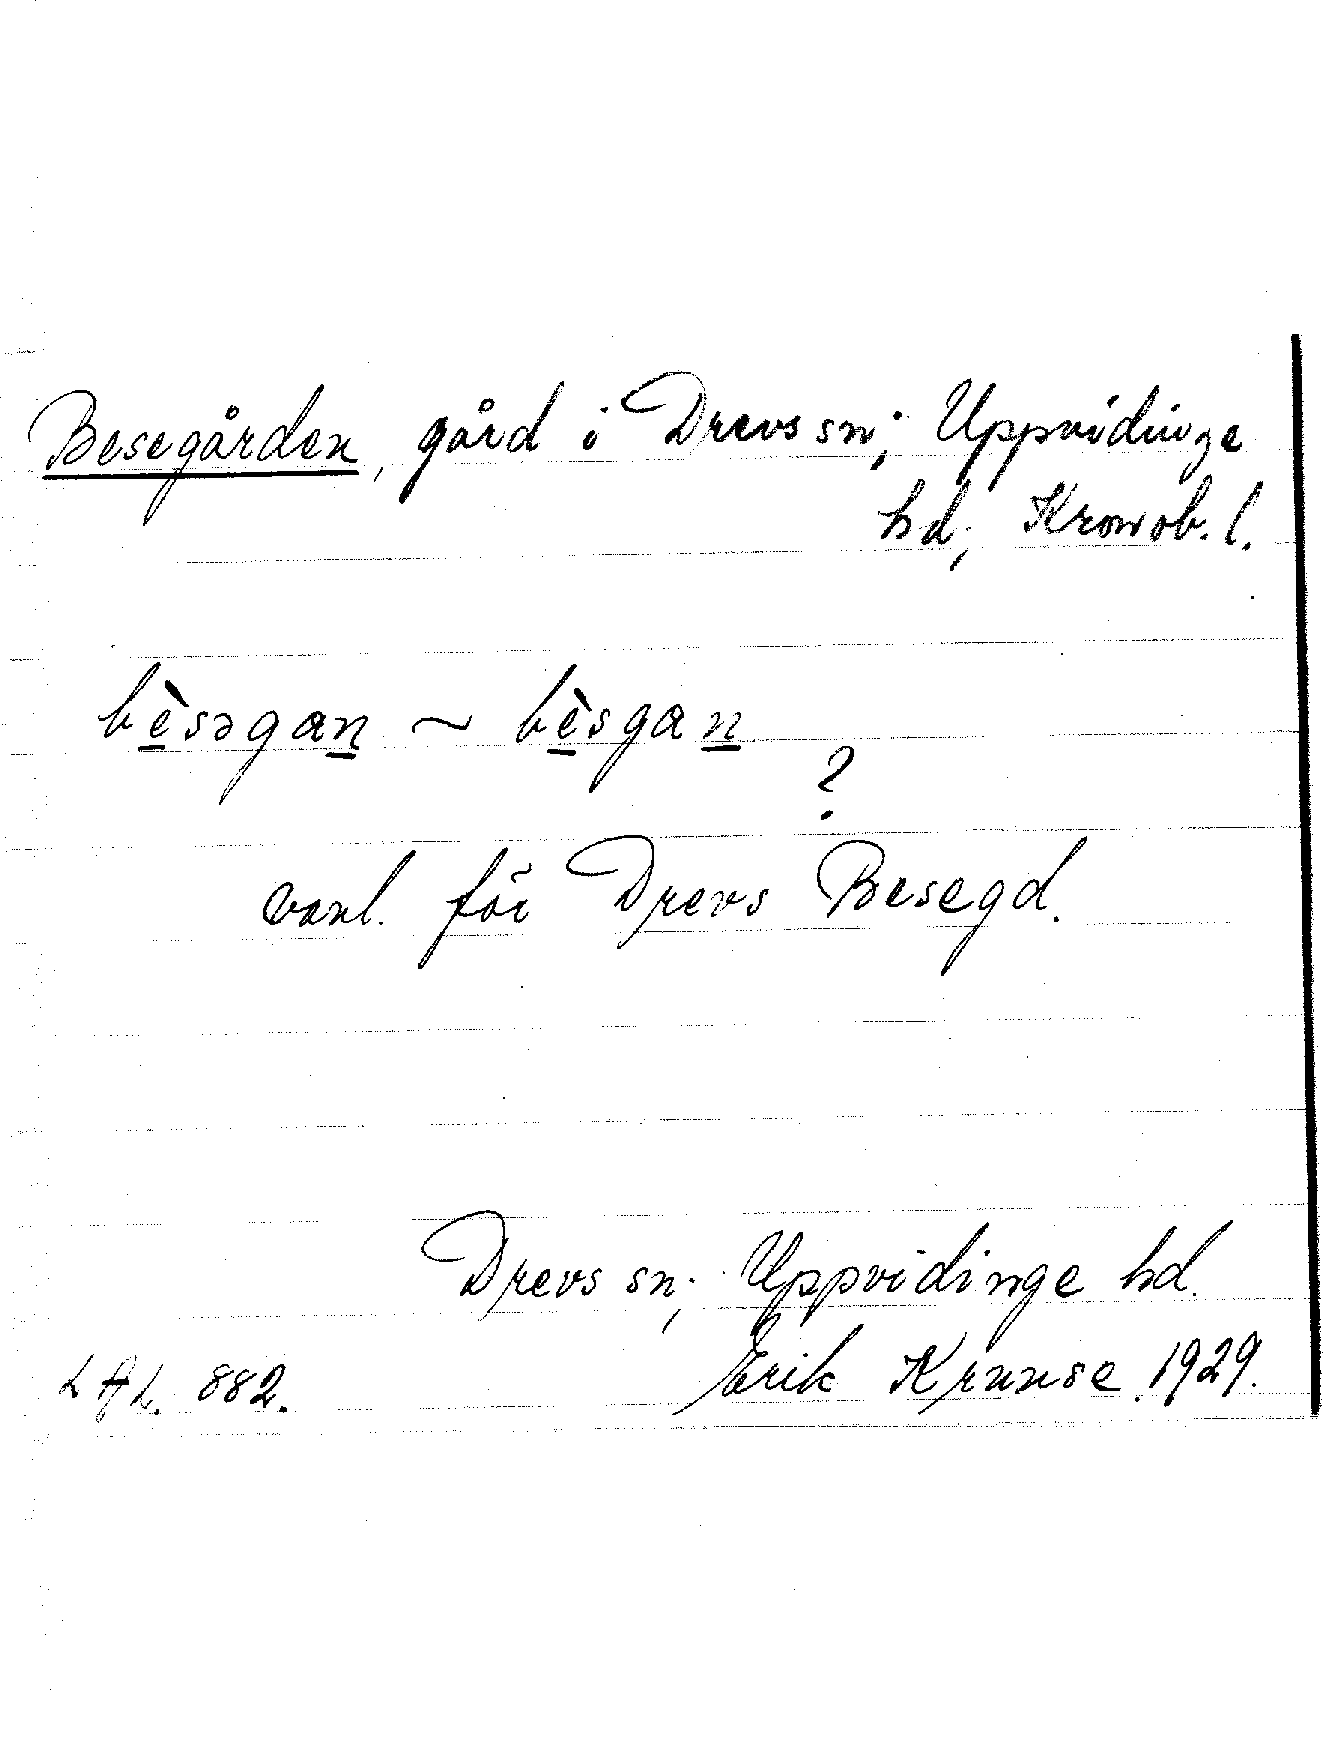 Besegården, gård i Drevs sn; Uppvidinge
hd, Kronob. l.
bèsəgan ~ bèsgan
?
vanl. för Drevs Besegd.
Drevs sn; Uppvidinge hd.
LAL. 882. Erik Kruuse 1929.